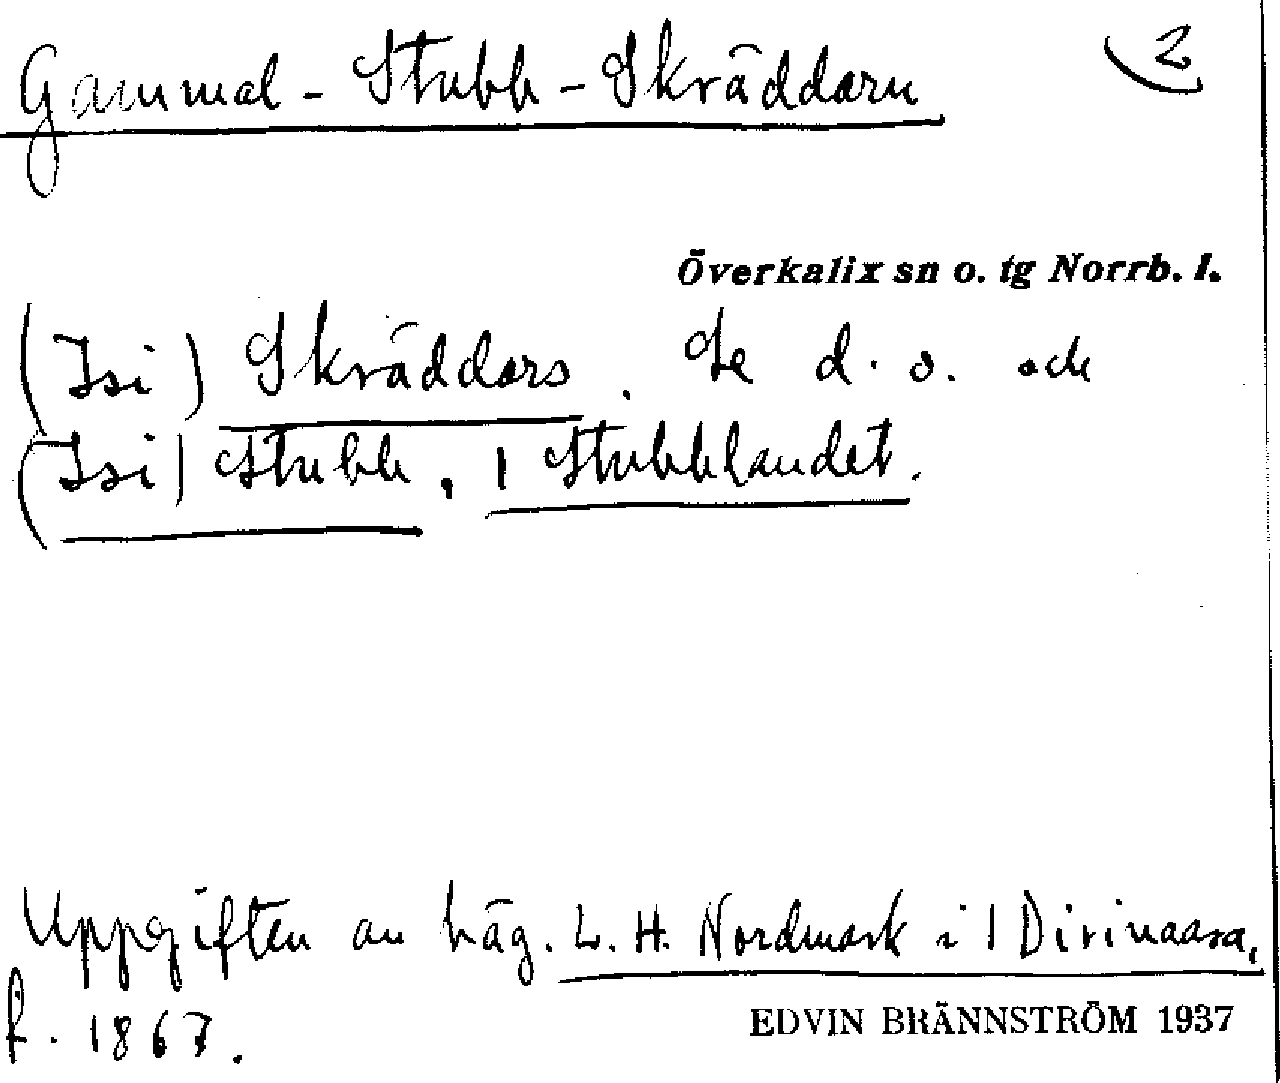 Gammal-Stubb-Skräddarn 2
Överkalix sn o. tg Norrb. l.
(Isi) Skräddars. Se d. o. och
(Isi) Stubb, 1 Stubblandet.
Uppgiften av häg. L. H. Nordmark i 1 Dirinaara,
f. 1867.
EDVIN BRÄNNSTRÖM 1937